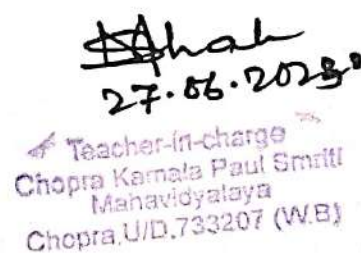 27.06.2023
Teacher-in-charge
Chopra Kamala Paul Smriti
Mahavidyalaya
Chopra,U/D,733207 (W.B)